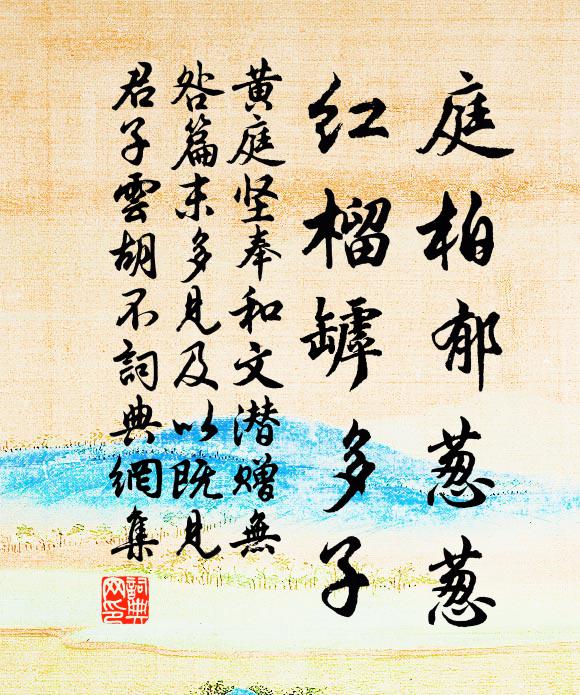 庭柏郁葱葱
红榴罅多子
黄庭坚奉和文潜赠無
咎篇末多見及以既見
君子雲胡不詞典網集
詞典网印